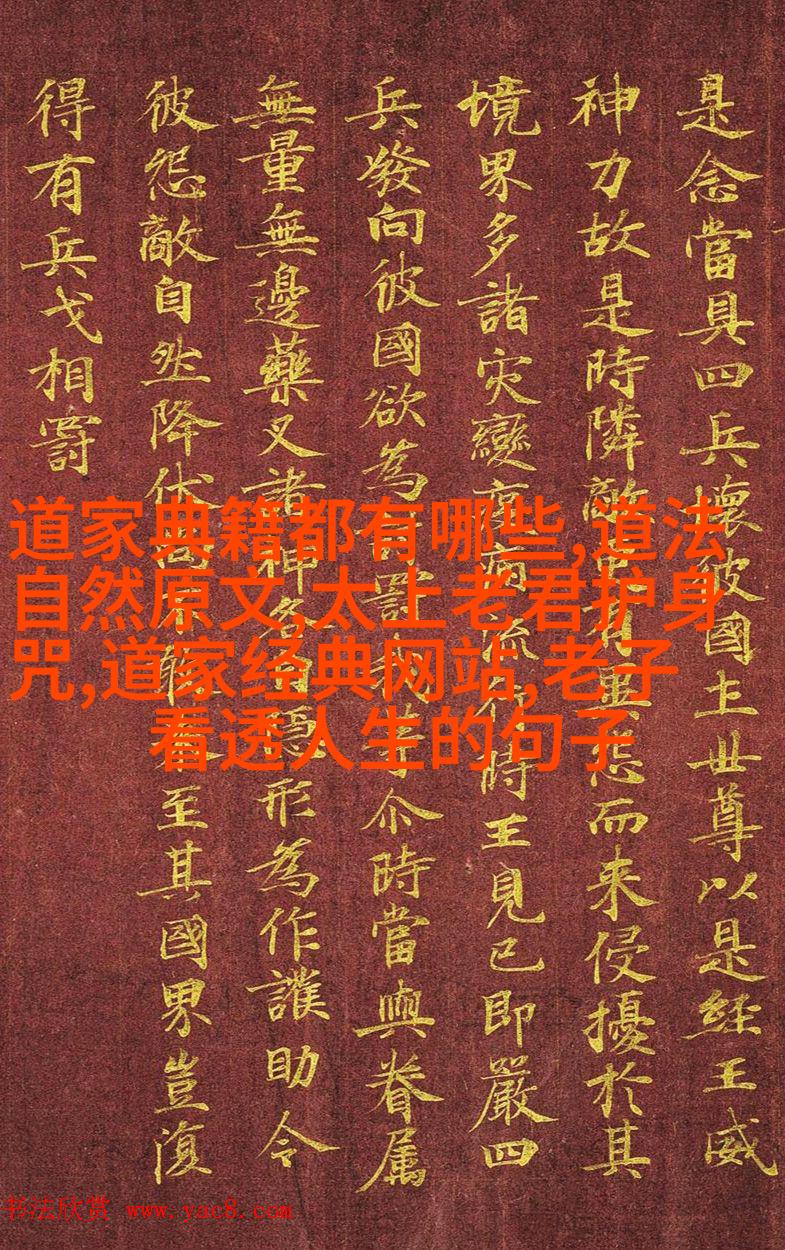 是念當具四兵壞彼國土世尊以是經王威
神力故是時隣敵更有異怨而来侵擾於其
境界多諸灾變疫病流行時王見已即嚴四
兵發向彼國欲為討罰我等尒時當與眷属
無量無邊藥叉諸神各自隱形為作護助令
彼怨敵自然降伏尚不至其國界豈復
得有兵戈相罰
道家典籍都有哪些,道法
自然原文,太上老君护身
咒,道家经典网站,老子
看透人生的句子
书法欣赏 www.yac8.com